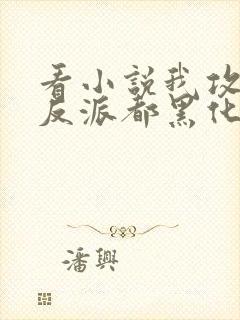 看小說我攻
反派都黑化
潘興